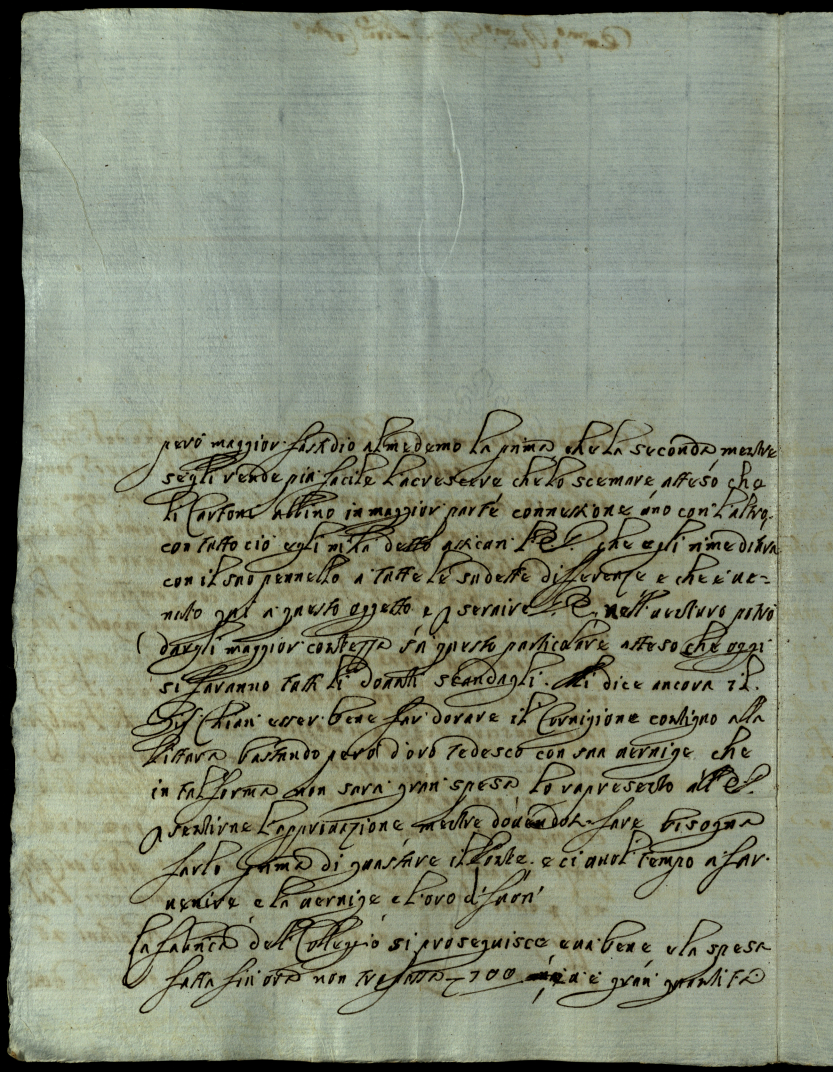 però maggior fastidio al medemo la prima che la seconda mentre
segli rende più facile l'acrescere che lo scemare atteso che
li Cartoni abbino in maggior parte connessione uno con l'altro
con tutto ciò egli mi ha detto assicuri V.E. che egli rimediara
con il suo pennello a tutte le sudette differenze e che è ve=
nuto qui a questo oggetto e p servire V.E. nell'venturo potrò
dargli maggior contezza in questo particolare atteso che oggi
si faranno tutti li donuti scandagli. Mi dice ancora il
Sig. Chiari esser bene far dorare il Cornigione contiguo alla
Pittura bastando però d'oro tedesco con sua vernige che
in tal forma non sarà gran spesa lo rapresento all'E.V.
p sentirne l'approvazione mentre dovendolo fare bisogna
farlo prima di guastare il Ponte. e ci vuol tempo a far
venire e la vernige e l'oro di fuori
La fabrica del Colleggio si proseguisce e va bene e la spesa
fatta fin ora non trapassa 700 e gran quantità